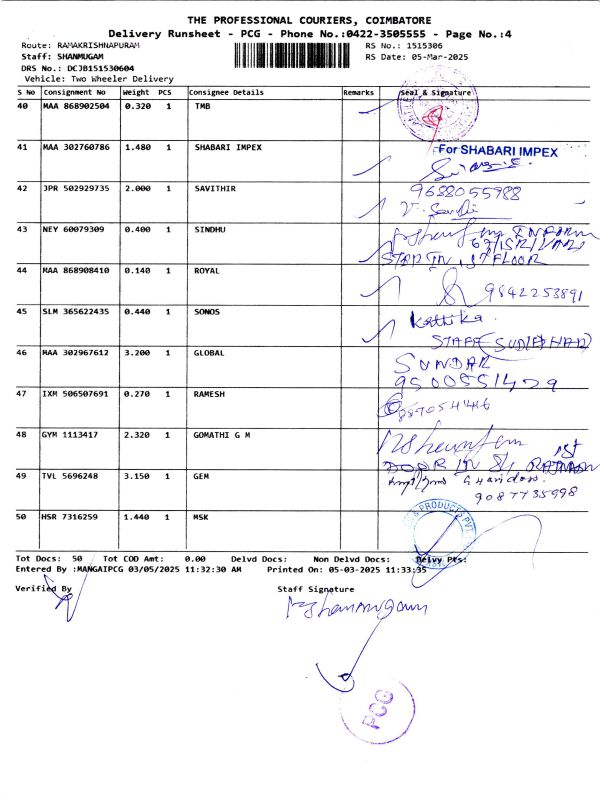 THE PROFESSIONAL COURIERS, COIMBATORE
Delivery Runsheet - PCG - Phone No.:0422-3505555 - Page No.:4
Route: RAMAKRISHNAPURAM RS No.: 1515306
Staff: SHANMUGAM RS Date: 05-Mar-2025
DRS No.: DCJB151530604
Vehicle: Two Wheeler Delivery
S No Consignment No Weight PCS Consignee Details Remarks Seal & Signature
40 MAA 868902504 0.320 1 TMB
41 MAA 302760786 1.480 1 SHABARI IMPEX For SHABARI IMPEX
42 JPR 502929735 2.000 1 SAVITHIR 9688055988
43 NEY 60079309 0.400 1 SINDHU
FLOOR
44 MAA 868908410 0.140 1 ROYAL 9842253891
45 SLM 365622435 0.440 1 SONOS Karthika
STAFF
46 MAA 302967612 3.200 1 GLOBAL SUNDAR
9500551479
47 IXM 506507691 0.270 1 RAMESH
48 GYM 1113417 2.320 1 GOMATHI G M 1st
DOOR IN
49 TVL 5696248 3.150 1 GEM
9087735998
50 HSR 7316259 1.440 1 MSK PRODUCTS PVT
Tot Docs: 50 Tot COD Amt: 0.00 Delvd Docs: Non Delvd Docs: Delvy Pts:
Entered By :MANGAIPCG 03/05/2025 11:32:30 AM Printed On: 05-03-2025 11:33:35
Verified By Staff Signature
Shanmugam
PCG